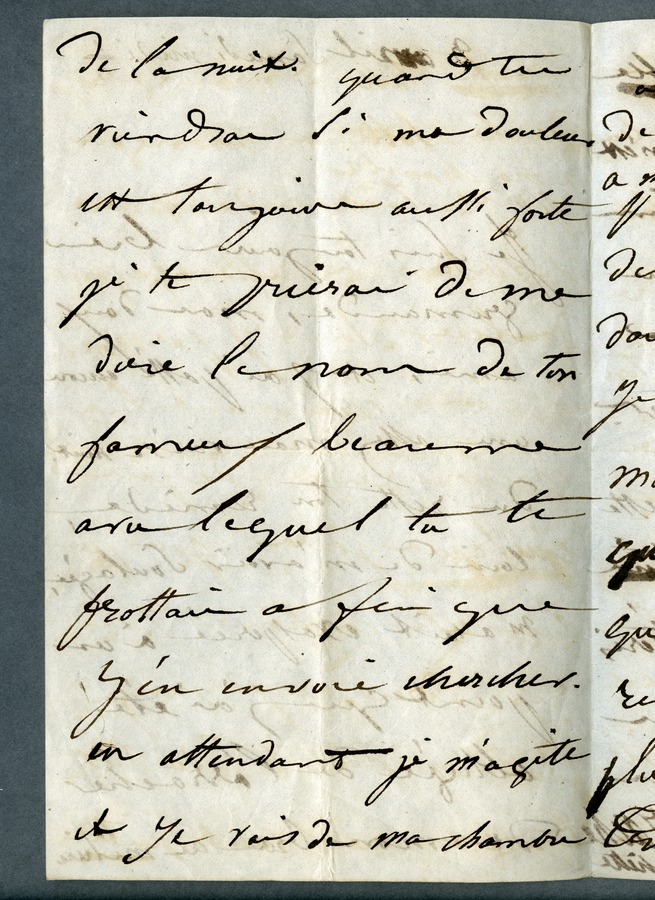 de la nuit. quand tu
viendras si ma douleur
est toujours aussi forte
je te prierai de me
dire le nom de ton
fameux beaume
avec lequel tu te
frottais a fin que
j'en envoie chercher.
en attendant je m'agite
et je vais de ma chambre